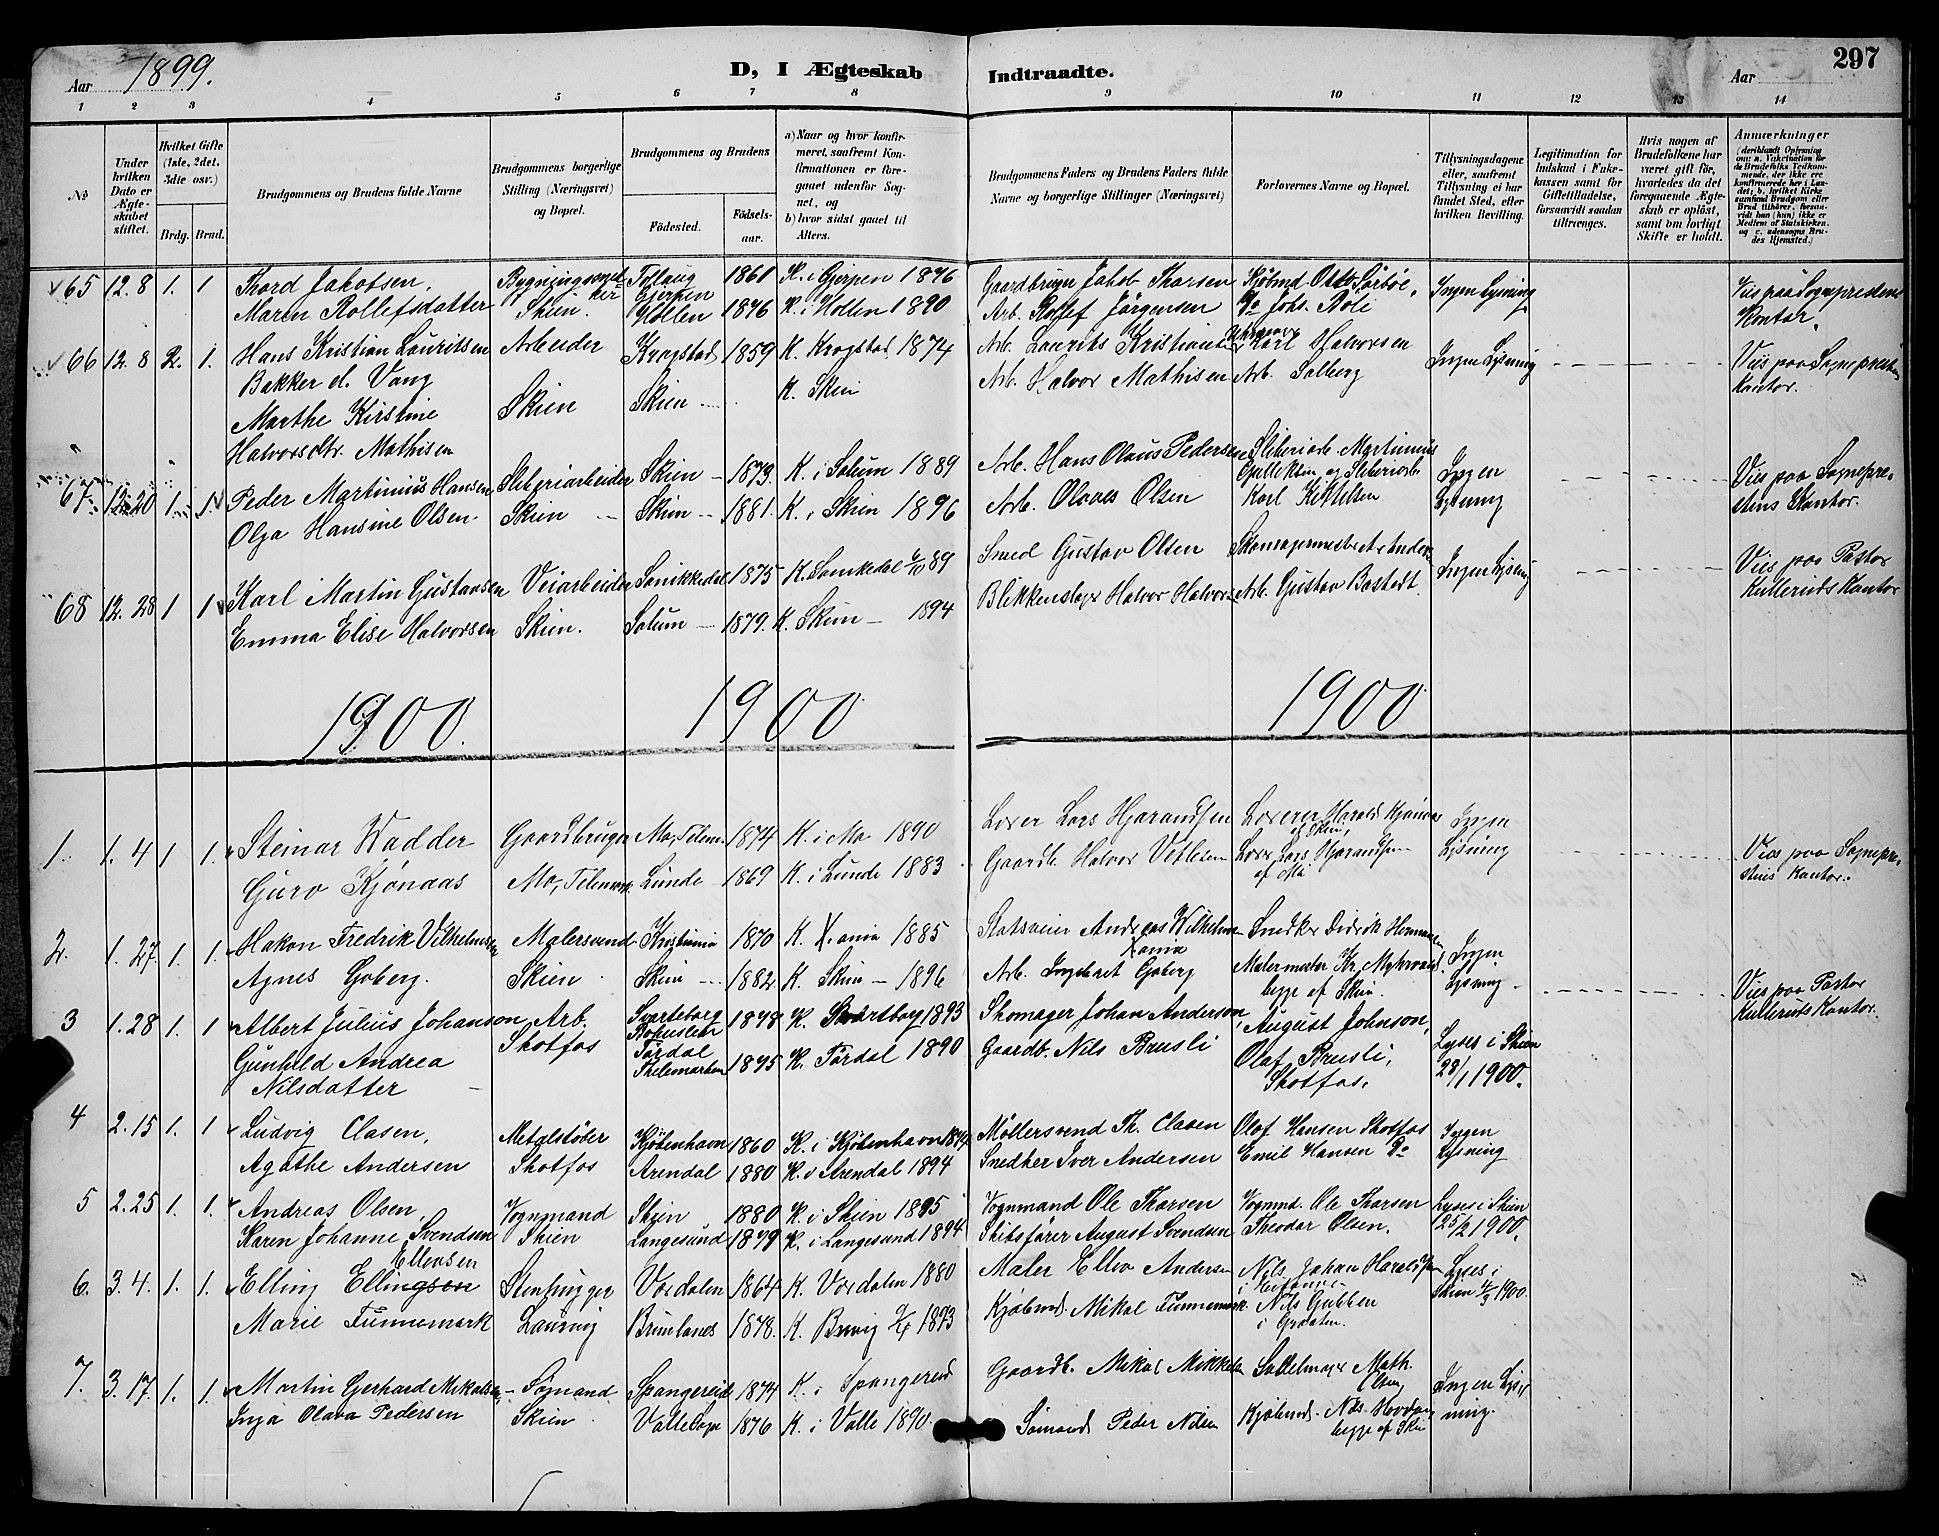 Aar 1899.
D, I Ægteskab Indtraadte.
Aar
297
1 2 3 4 5 6 7 8 9 10 11 12 13 14
№
Under hvilken Dato er Ægteskabet stiftet.
Hvilket Gifte (1ste, 2det, 3die osv.)
Brdg. Brud.
Brudgommens og Brudens fulde Navne
Brudgommens borgerlige Stilling (Næringsvei) og Bopæl.
Brudgommens og Brudens
Fødested.
Fødselsaar.
a) Naar og hvor konfirmeret, saafremt Konfirmationen er foregaaet udenfor Sognet, og
b) hvor sidst gaaet til Alters.
Brudgommens Faders og Brudens Faders fulde Navne og borgerlige Stillinger (Næringsvei)
Forlovernes Navne og Bopæl.
Tillysningsdagene eller, saafremt Tillysning ei har fundet Sted, efter hvilken Bevilling.
Legitimation for Indskud i Enkekassen samt for Giftetilladelse, forsaavidt saadan tiltrænges.
Hvis nogen af Brudefolkene har været gift før, hvorledes da det foregaaende Ægteskab er opløst, samt om lovligt Skifte er holdt.
Anmærkninger
65 12.8 1. 1 Thord Jakobsen, Skien. Gjerpen 1861 K. i Gjerpen 1876 Gaardbruger Jakob Thorsen Kjøbmd Otto Sørbøe, Ingen Lysning Vies paa Sognepresten
Maren Rollefsdatter Hollen 1876 K. i Hollen 1890 Arb. Rollef Jörgensen Do Johs. Roli Kontor.
66 12.8 2. 1. Hans Kristian Lauritsen Arbeider Krogstad 1859 K. Krogstad 1874 Arb. Laurits Kristiansen Karl Halvorsen Ingen Lysning Vies paa Sogneprestens
Bakker el. Vang Arb. Halvor Mathisen Arb. Solberg Kontor.
Marthe Kirstine Skien Skien K. Skien
Halvorsdtr. Mathisen
67. 12.20 1. 1. Peder Martinius Hansen Sliberiarbeider Skien 1873. K. i Solum 1889 Arb. Hans Olaus Pedersen Sliberiarb. Martinius Ingen Vies paa Sognepre-
Olga Hansine Olsen Skien Skien 1881. K. i Skien 1896 Arb. Olaves Olsen Karl Kittilsen Lysning stens Kontor.
68 12.28 1 1 Karl Martin Gustavsen Veiarbeider Sanikkedal 1875 K. Sanikedal 89 Smed Gustav Olsen Ingen Lysning Vies paa Pastor
Emma Elise Halvorsen Skien. Solum 1879. K. Skien 1894 Blikkenslager Halvor Halvorsen Arb. Gustav Bostedt. Kulleruds Kontor
1900. 1900 1900
1. 1.4 1 1. Steinar Wadder Gaardbruger Mo, Telem. 1874 K. i Mo 1890 Lærer Lars Hjarandsen Lærer Harald Kjönaas af Skien, Ingen Vies paa Sognepre-
Guro Kjönaas Mo, Telemark. Lunde 1869 K. i Lunde 1883 Gaardb. Halvor Vetlesen Lærer Lars Hjarandsen af Mo Lysning stens Kontor.
2. 1.27. 1. 1. Hakon Fredrik Vilhelmsen Malersvend Kristiania 1870 K. X.ania 1885 Statsveier Andreas Wilhelmsen Xania Snedker Didrik Hermansen Ingen
Agnes Goberg. Skien Skien 1882 K. Skien 1896 Arb. Ingebret Goberg Malermester Kr. begge af Skien. Lysning Vies paa Pastor
3 1.28 1. 1 Albert Julius Johanson, Arb. Svarteborg Bohuslen 1878 K. Svartborg 1893 Skomager Johan Anderson, August Johnson, Lyses i Skien Kulleruds Kontor.
Gunhild Andrea Skotfos Tørdal Thelemarken 1875 K. Tørdal 1890 Gaardb. Nils Brusli Olaf Brusli, 28/1 1900.
Nilsdatter Skotfos.
4 2.15 1. 1 Ludvig Clasen, Metalstøber Kjöbenhavn 1860 K. i Kjöbenhavn 1874 Möllersvend Th. Clasen Olaf Hansen Skotfos Ingen
Agathe Andersen Skotfos Arendal 1880 K. i Arendal 1894 Snedker Iver Andersen Emil Hansen Do Lysning
5 2.25 1. 1. Andreas Olsen, Vognmand Skien 1880 K. i Skien 1895 Vognmand Ole Thorsen Vognmd. Ole Thorsen Lyses i Skien
Karen Johanne Svendsen Skien Langesund 1879 K. i Langesund 1894 Skibsfører August Svendsen Theodor Olsen. 25/2 1900.
6. 3.4. 1. 1. Elling Ellingsen Ellevsen Stenhugger Vordalen 1864 K. Vordalen 1880 Maler Ellev Andersen Nils Johan Haraldsen Lyses i
Marie Funnemark Laurvig Brunlanes 1878. K. Brevig 1893 Kjøbmd. Mikal Funnemark. Nils Gubben Skien 4/3 1900.
7. 3.17. 1. 1. Martin Gerhard Mikalsen, Sømand Spangereid 1874 K. i Spangereid Gaardb. Mikal Mikkelsen Sadelmager Math. Olsen, Ingen Lys-
Inga Olava Pedersen Skien Valle Sogn 1876 K. i Valle 1890. Sømand Peder Nilsen Kjøbmd. Nils begge af Skien ning.